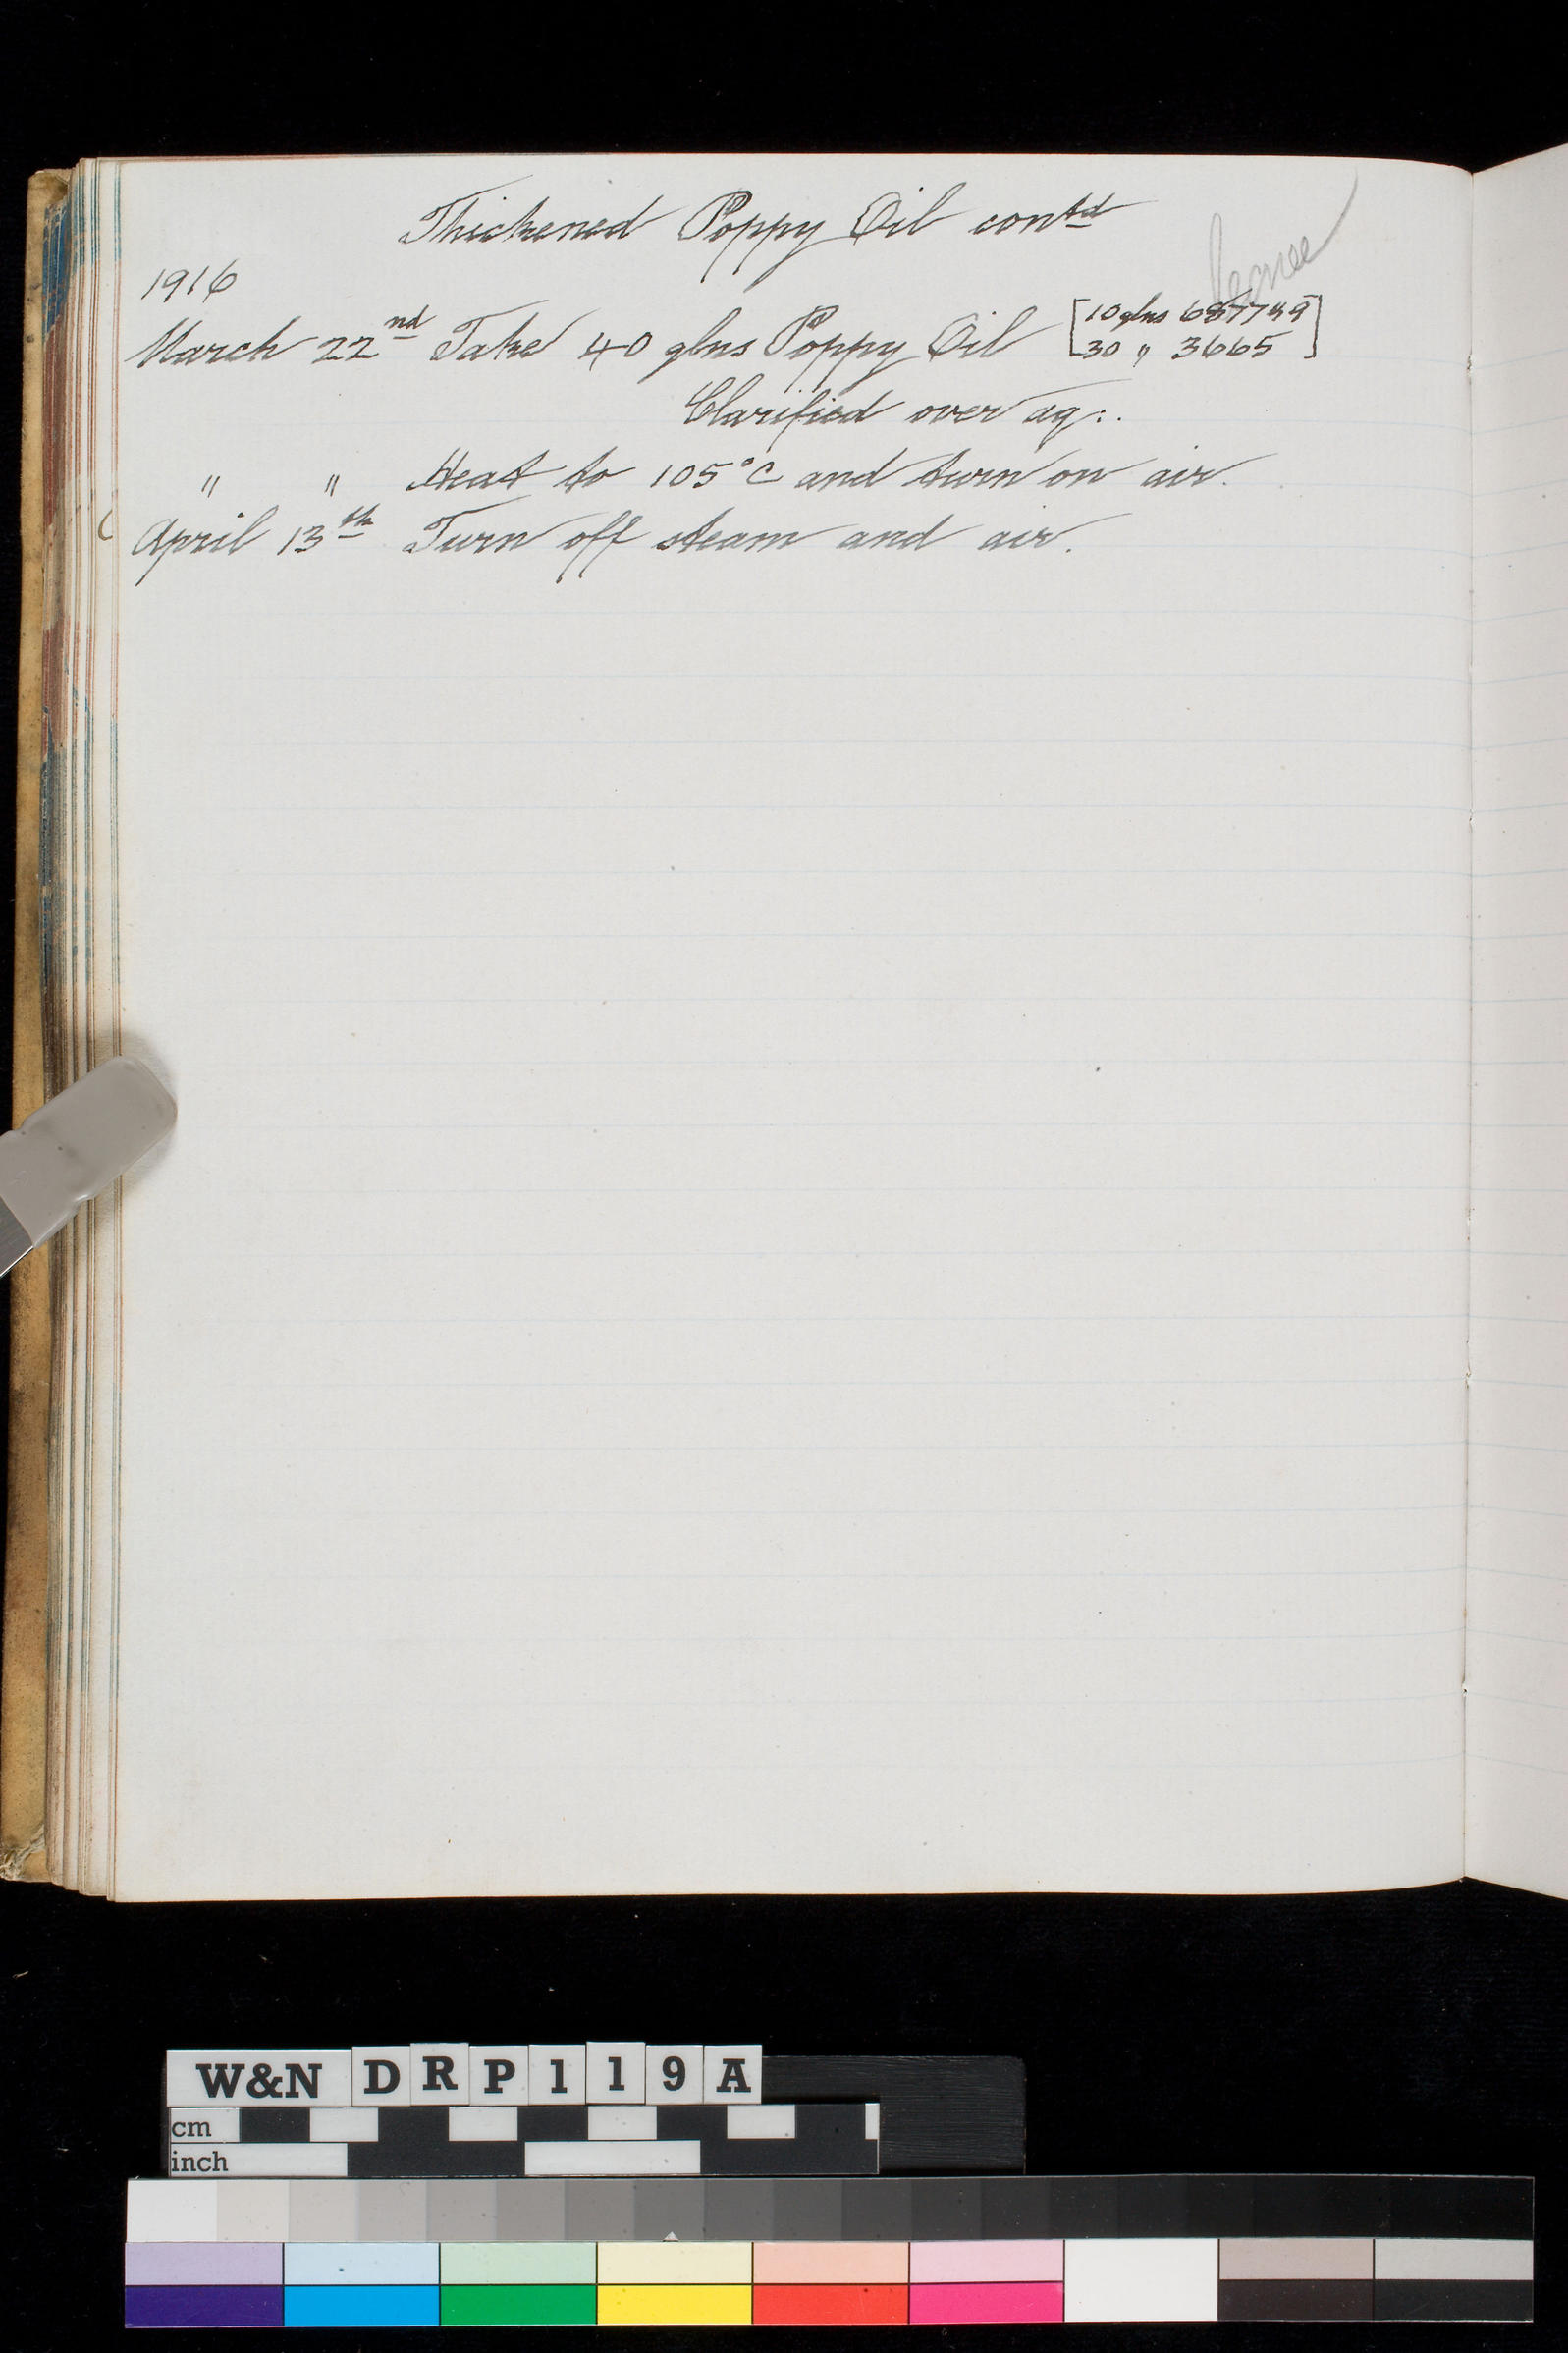 Thickened Poppy Oil contd
1916
March 22nd Take 40 glns Poppy Oil [10 glns
30 " 3665]
Clarified over aq:.
" " Heat to 105°C and turn on air.
April 13th Turn off steam and air.
W&N DRP119A
cm
inch